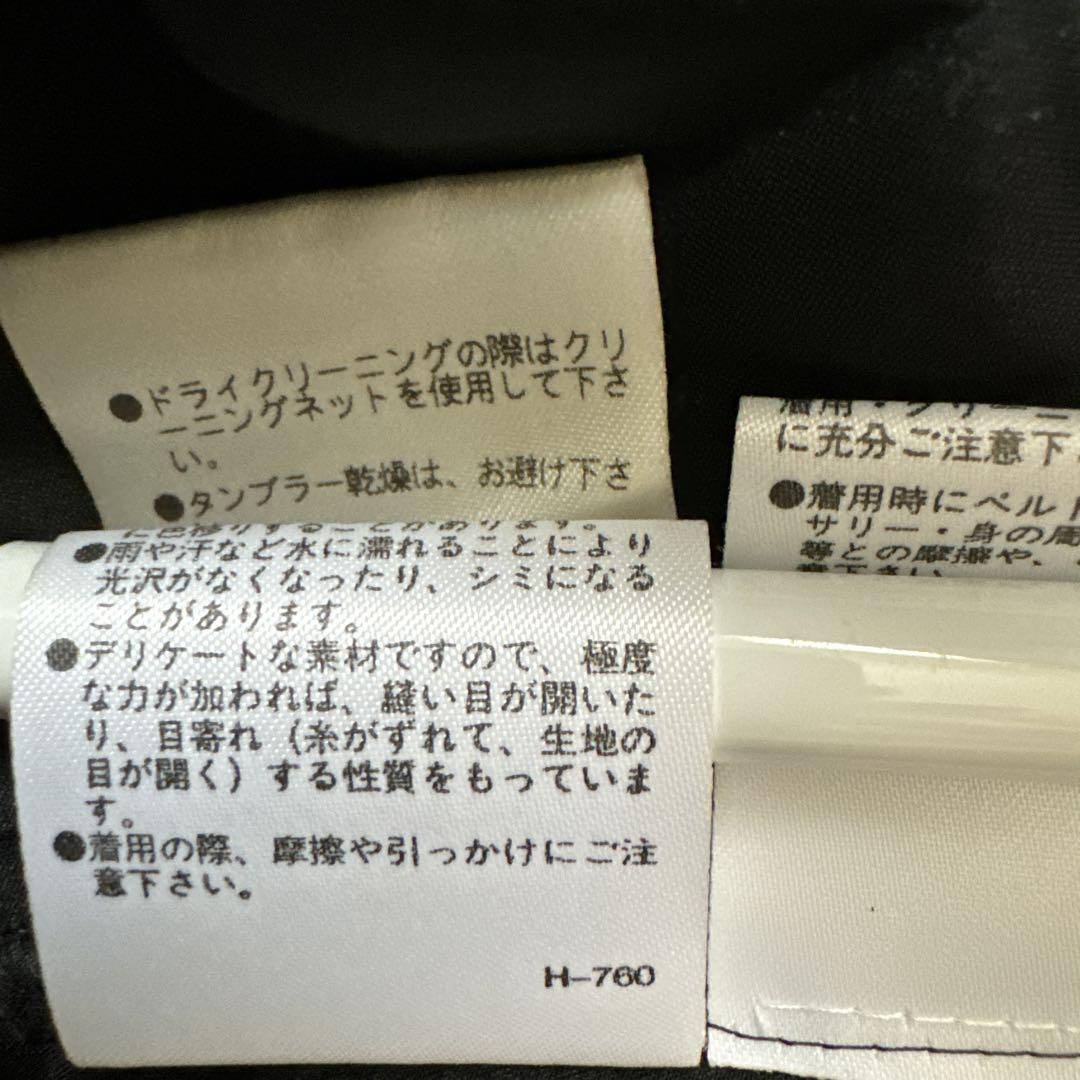 ●ドライクリーニングの際はクリ
ーニングネットを使用して下さ
い。
●タンブラー乾燥は、お避け下さ
に色移りすることがあります。
●雨や汗など水に濡れることにより
光沢がなくなったり、シミになる
ことがあります。
●デリケートな素材ですので、極度
な力が加われば、縫い目が開いた
り、目寄れ（糸がずれて、生地の
目が開く）する性質をもっていま
す。
●着用の際、摩擦や引っかけにご注
意下さい。
H-760
着用・クリーニ
に充分ご注意下
●着用時にベルト
サリー・身の周
等との摩擦や、
意下さい